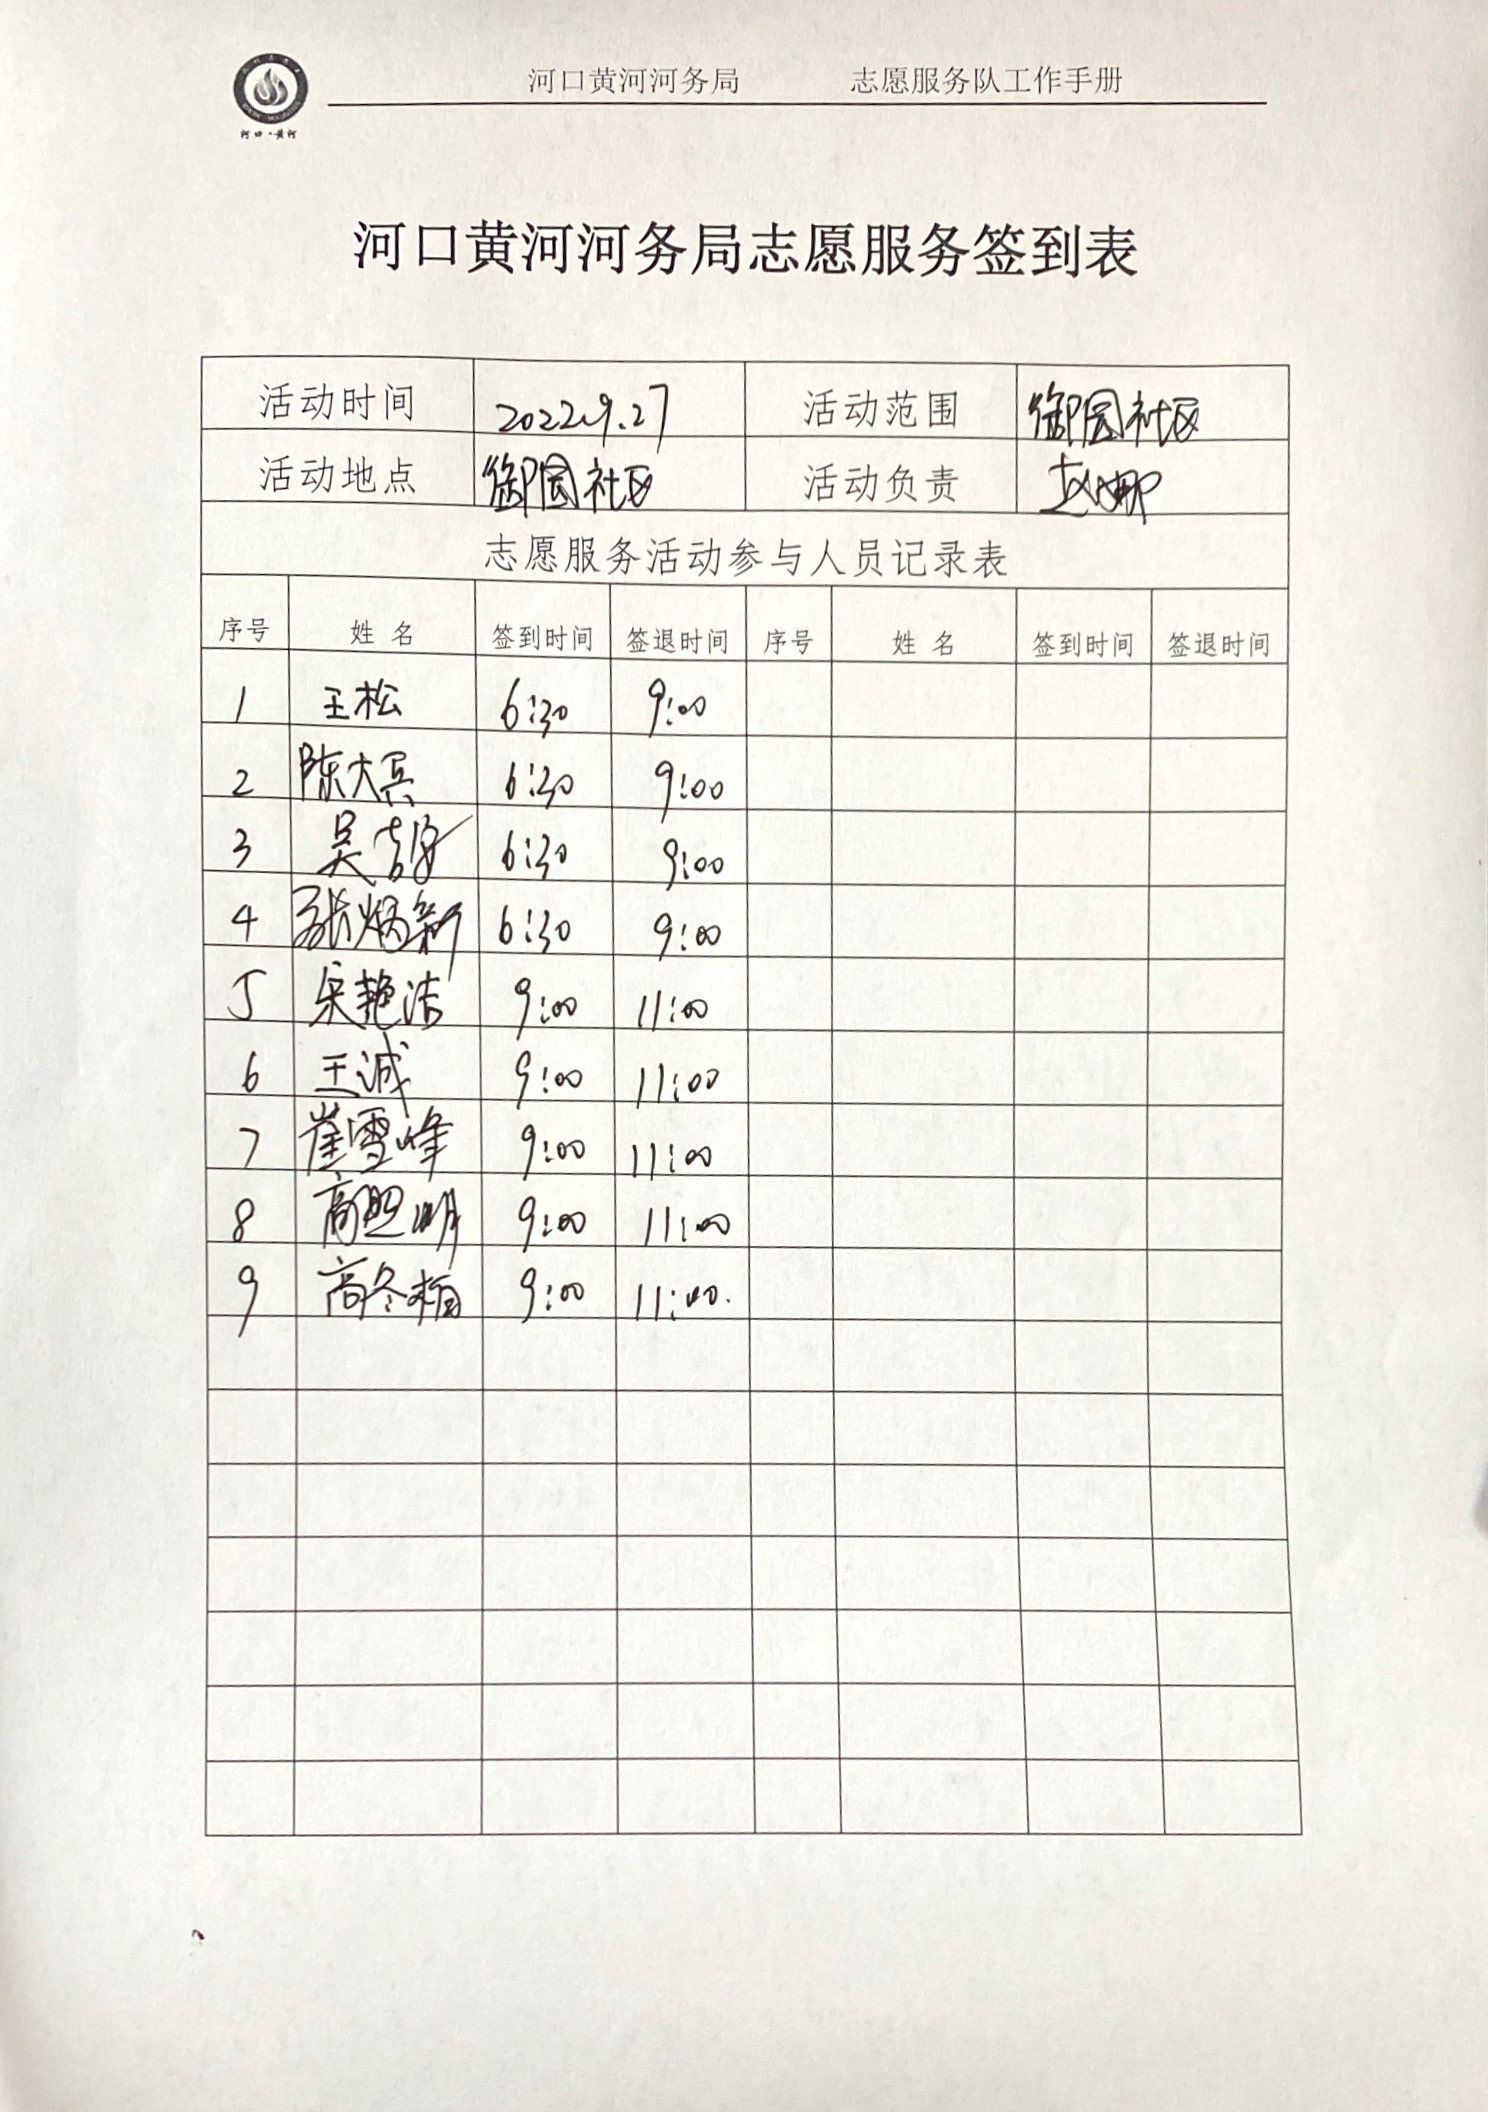 河口黄河河务局 志愿服务队工作手册
河口·黄河
河口黄河河务局志愿服务签到表
活动时间 2022.9.27 活动范围 御园社区
活动地点 御园社区 活动负责 赵娜
志愿服务活动参与人员记录表
序号 姓 名 签到时间 签退时间 序号 姓 名 签到时间 签退时间
1 王松 6:30 9:00
2 陈大兵 6:30 9:00
3 吴 6:30 9:00
4 张炳新 6:30 9:00
5 宋艳洁 9:00 11:00
6 王诚 9:00 11:00
7 崔雪峰 9:00 11:00
8 高照明 9:00 11:00
9 高冬梅 9:00 11:00.